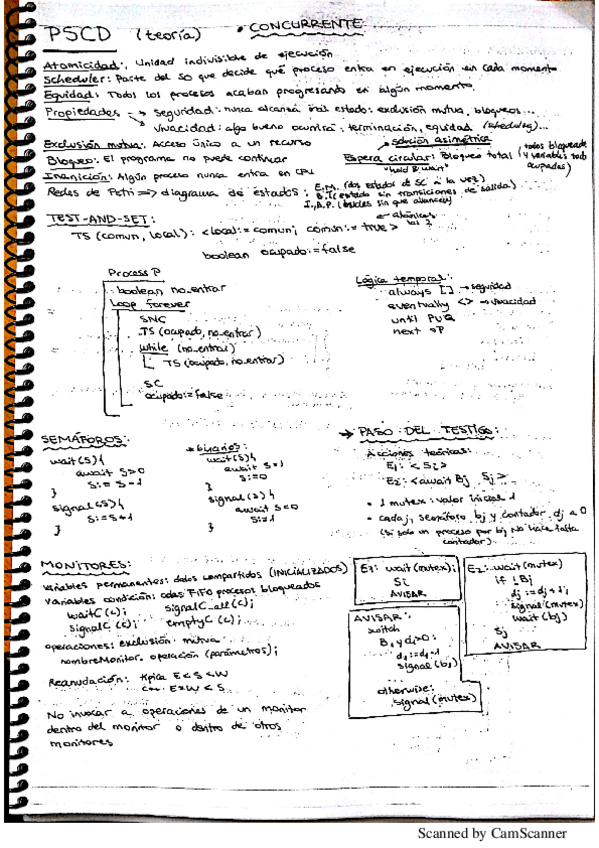 PSCD (teoría) • CONCURRENTE
Atomicidad: Unidad indivisible de ejecución
Scheduler: Parte del SO que decide qué proceso entra en ejecución en cada momento
Equidad: Todos los procesos acaban progresando en algún momento.
Propiedades → seguridad: nunca alcanza mal estado: exclusión mutua, bloqueos...
→ vivacidad: algo bueno ocurrirá: terminación, equidad (scheduling)...
Exclusión mutua: Acceso único a un recurso
→ solución asimétrica
Bloqueo: El programa no puede continuar
Espera circular: Bloqueo total (todos bloqueados y variables todo ocupadas)
"hold & wait"
Inanición: Algún proceso nunca entra en CPU
Redes de Petri => diagrama de estados: E.M. (dos estados de SC a la vez)
B. (estado sin transiciones de salida)
I.A.P. (bucles sin que avancen)
TEST-AND-SET:
← atómicas
TS (comun, local): <local:= comun; comun:= true>
boolean ocupado:=false
Process P
boolean no_entrar
Loop forever
SNC
TS (ocupado, no_entrar)
while (no_entrar)
TS (ocupado, no_entrar)
SC
ocupado:=false
Lógica temporal:
always [] → seguridad
eventually <> → vivacidad
until PUQ
next oP
SEMÁFOROS:
wait(s){
await s>0
s:= s-1
}
signal(s){
s:= s+1
}
→ binarios:
wait(s){
await s=1
s:=0
}
signal(s){
await s=0
s:=1
}
→ PASO DEL TESTIGO:
Acciones teóricas:
E1: <Si>
E2: <await Bj Sj>
• 1 mutex: valor inicial 1
• cada j, semáforo bj y contador dj a 0
(si solo un proceso por bj no hace falta
contador).
MONITORES:
variables permanentes: datos compartidos (INICIALIZADOS)
variables condición: colas FIFO procesos bloqueados
waitC (c); signalC_all(c);
signalC (c); emptyC (c);
operaciones: exclusión mutua
nombreMonitor.operación (parámetros);
Reanudación: típica E<S<W
E=W<S
No invocar a operaciones de un monitor
dentro del monitor o dentro de otros
monitores
E1: wait(mutex);
Si
AVISAR
AVISAR:
switch
Bj y dj>0:
dj:=dj-1
signal (bj)
otherwise:
signal(mutex)
E2: wait(mutex)
if !Bj
dj:=dj+1;
signal(mutex)
wait(bj)
Sj
AVISAR
Scanned by CamScanner